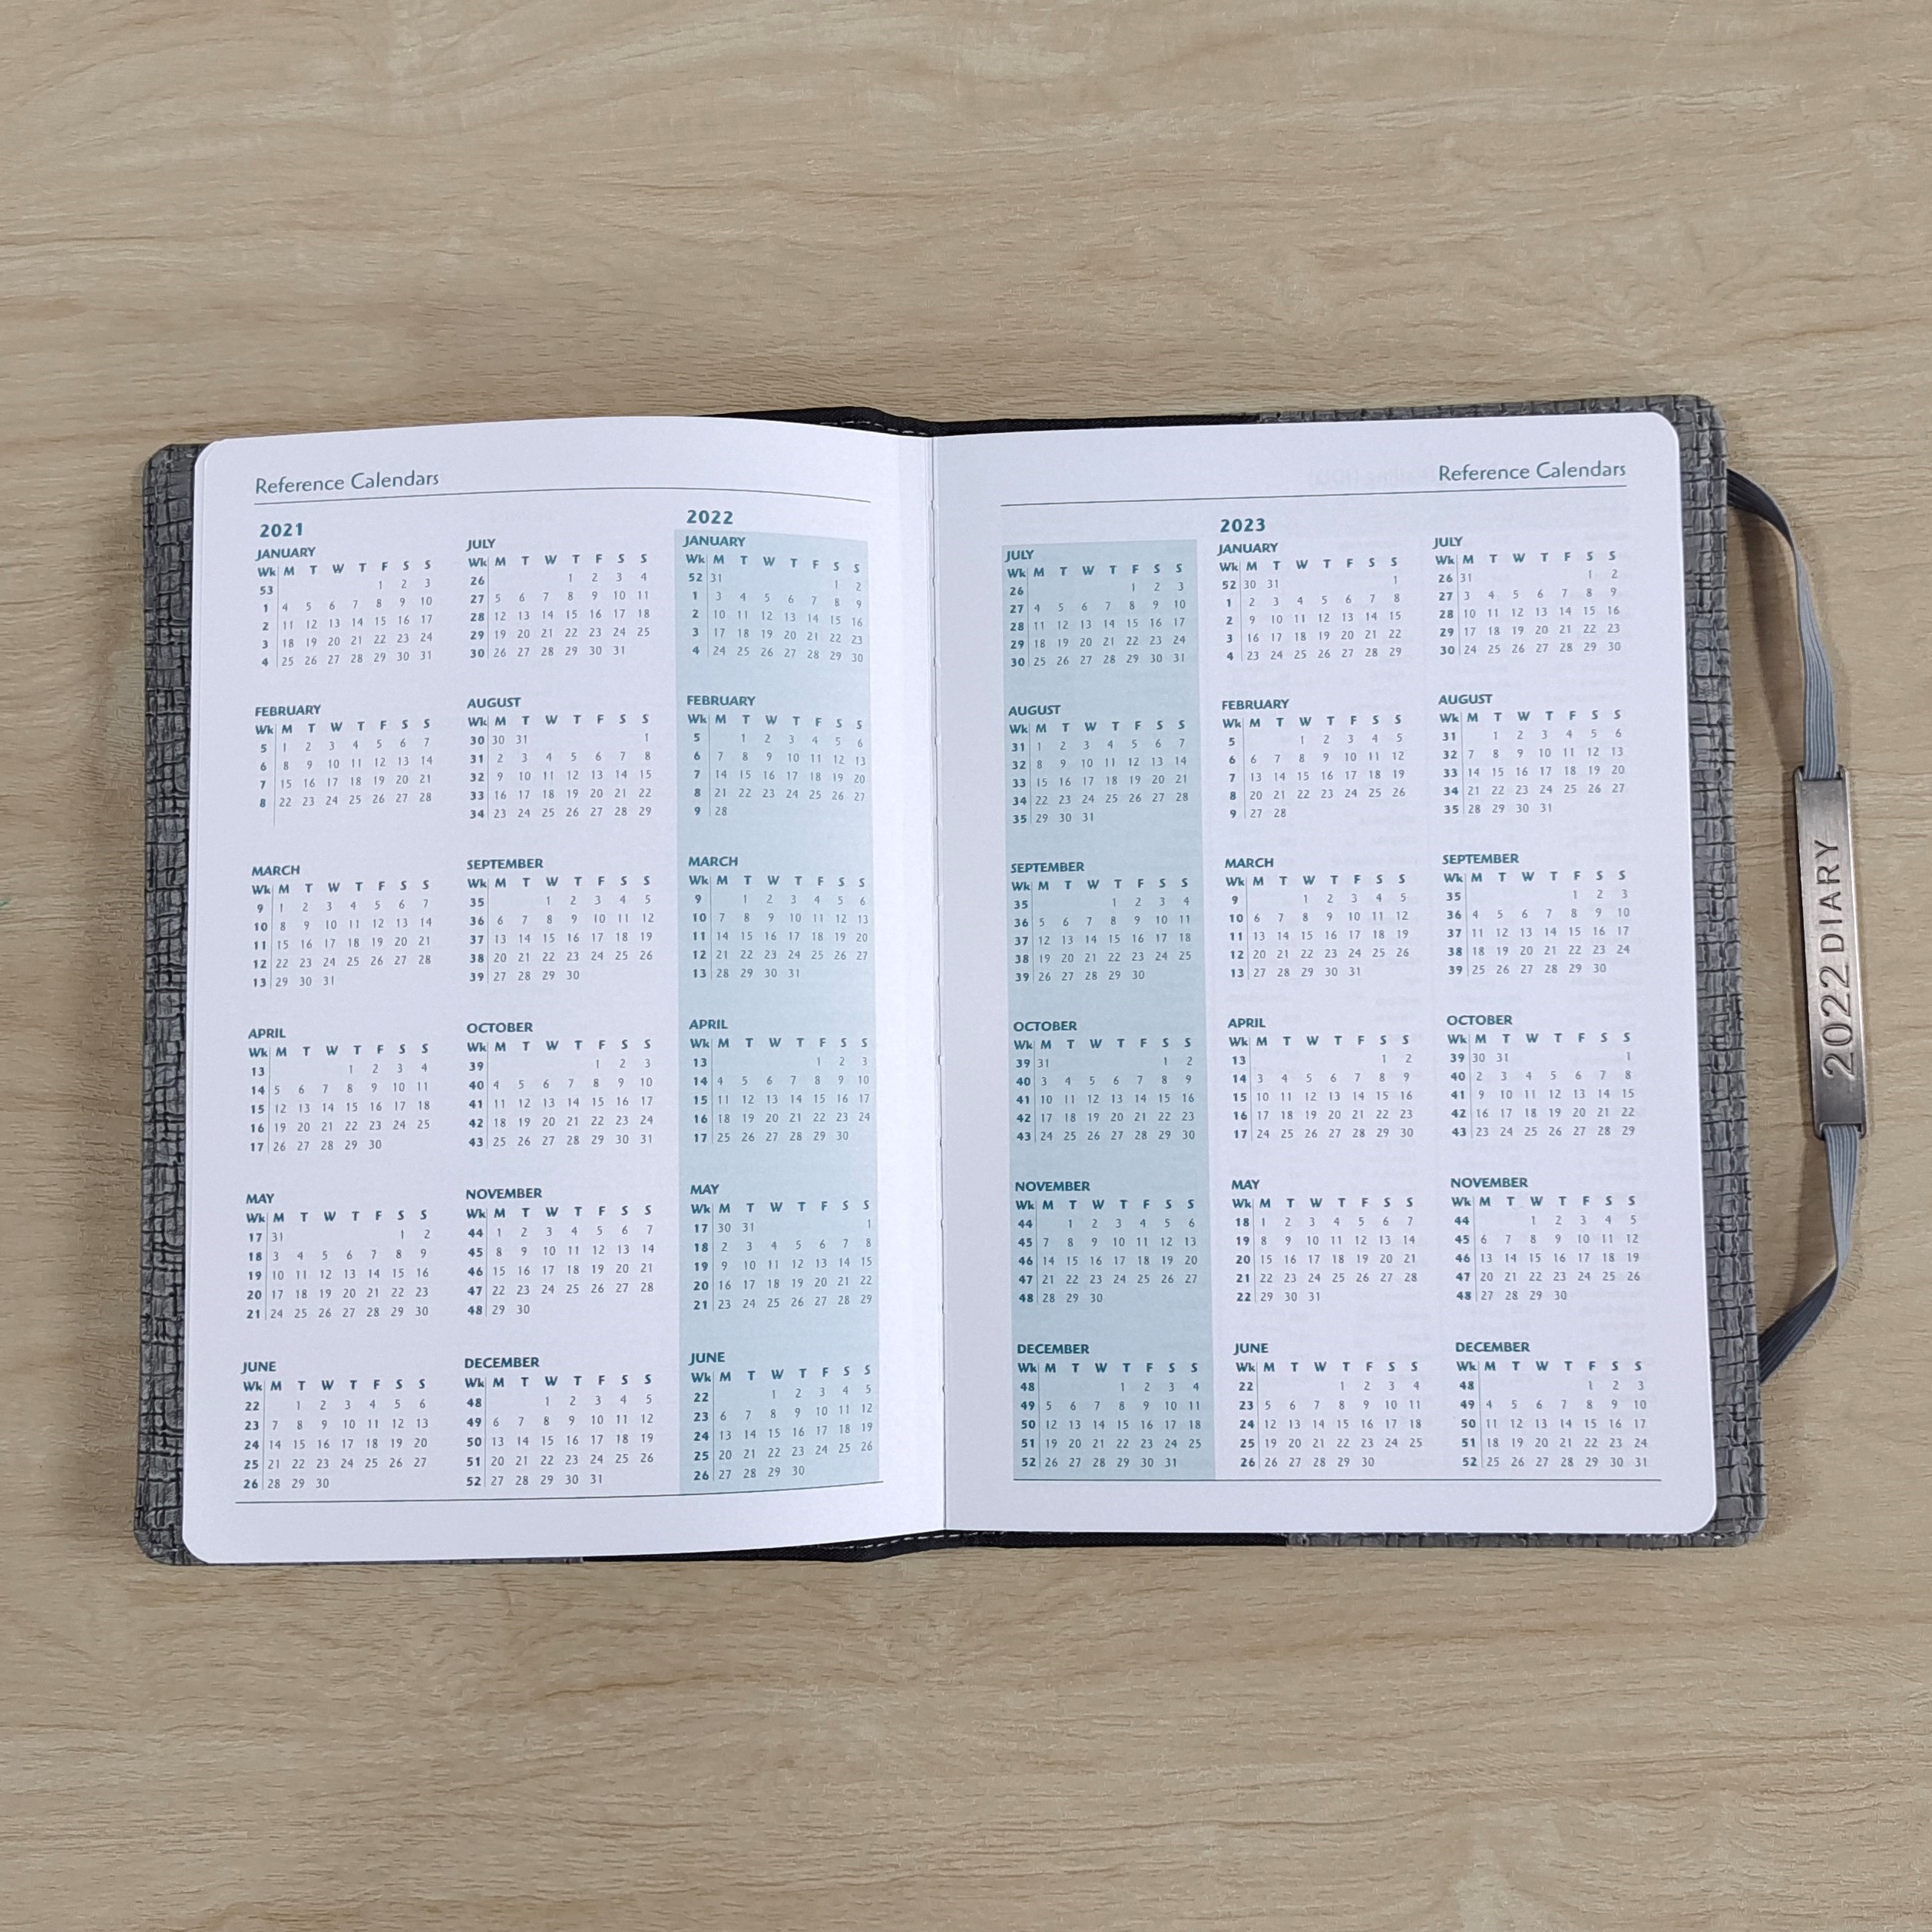 Reference Calendars
2021
JANUARY
Wk M T W T F S S
53 1 2 3
1 4 5 6 7 8 9 10
2 11 12 13 14 15 16 17
3 18 19 20 21 22 23 24
4 25 26 27 28 29 30 31
FEBRUARY
Wk M T W T F S S
5 1 2 3 4 5 6 7
6 8 9 10 11 12 13 14
7 15 16 17 18 19 20 21
8 22 23 24 25 26 27 28
MARCH
Wk M T W T F S S
9 1 2 3 4 5 6 7
10 8 9 10 11 12 13 14
11 15 16 17 18 19 20 21
12 22 23 24 25 26 27 28
13 29 30 31
APRIL
Wk M T W T F S S
13 1 2 3 4
14 5 6 7 8 9 10 11
15 12 13 14 15 16 17 18
16 19 20 21 22 23 24 25
17 26 27 28 29 30
MAY
Wk M T W T F S S
17 31 1 2
18 3 4 5 6 7 8 9
19 10 11 12 13 14 15 16
20 17 18 19 20 21 22 23
21 24 25 26 27 28 29 30
JUNE
Wk M T W T F S S
22 1 2 3 4 5 6
23 7 8 9 10 11 12 13
24 14 15 16 17 18 19 20
25 21 22 23 24 25 26 27
26 28 29 30
JULY
Wk M T W T F S S
26 1 2 3 4
27 5 6 7 8 9 10 11
28 12 13 14 15 16 17 18
29 19 20 21 22 23 24 25
30 26 27 28 29 30 31
AUGUST
Wk M T W T F S S
30 30 31 1
31 2 3 4 5 6 7 8
32 9 10 11 12 13 14 15
33 16 17 18 19 20 21 22
34 23 24 25 26 27 28 29
SEPTEMBER
Wk M T W T F S S
35 1 2 3 4 5
36 6 7 8 9 10 11 12
37 13 14 15 16 17 18 19
38 20 21 22 23 24 25 26
39 27 28 29 30
OCTOBER
Wk M T W T F S S
39 1 2 3
40 4 5 6 7 8 9 10
41 11 12 13 14 15 16 17
42 18 19 20 21 22 23 24
43 25 26 27 28 29 30 31
NOVEMBER
Wk M T W T F S S
44 1 2 3 4 5 6 7
45 8 9 10 11 12 13 14
46 15 16 17 18 19 20 21
47 22 23 24 25 26 27 28
48 29 30
DECEMBER
Wk M T W T F S S
48 1 2 3 4 5
49 6 7 8 9 10 11 12
50 13 14 15 16 17 18 19
51 20 21 22 23 24 25 26
52 27 28 29 30 31
2022
JANUARY
Wk M T W T F S S
52 31 1 2
1 3 4 5 6 7 8 9
2 10 11 12 13 14 15 16
3 17 18 19 20 21 22 23
4 24 25 26 27 28 29 30
FEBRUARY
Wk M T W T F S S
5 1 2 3 4 5 6
6 7 8 9 10 11 12 13
7 14 15 16 17 18 19 20
8 21 22 23 24 25 26 27
9 28
MARCH
Wk M T W T F S S
9 1 2 3 4 5 6
10 7 8 9 10 11 12 13
11 14 15 16 17 18 19 20
12 21 22 23 24 25 26 27
13 28 29 30 31
APRIL
Wk M T W T F S S
13 1 2 3
14 4 5 6 7 8 9 10
15 11 12 13 14 15 16 17
16 18 19 20 21 22 23 24
17 25 26 27 28 29 30
MAY
Wk M T W T F S S
17 30 31 1
18 2 3 4 5 6 7 8
19 9 10 11 12 13 14 15
20 16 17 18 19 20 21 22
21 23 24 25 26 27 28 29
JUNE
Wk M T W T F S S
22 1 2 3 4 5
23 6 7 8 9 10 11 12
24 13 14 15 16 17 18 19
25 20 21 22 23 24 25 26
26 27 28 29 30
Reference Calendars
JULY
Wk M T W T F S S
26 1 2 3
27 4 5 6 7 8 9 10
28 11 12 13 14 15 16 17
29 18 19 20 21 22 23 24
30 25 26 27 28 29 30 31
AUGUST
Wk M T W T F S S
31 1 2 3 4 5 6 7
32 8 9 10 11 12 13 14
33 15 16 17 18 19 20 21
34 22 23 24 25 26 27 28
35 29 30 31
SEPTEMBER
Wk M T W T F S S
35 1 2 3 4
36 5 6 7 8 9 10 11
37 12 13 14 15 16 17 18
38 19 20 21 22 23 24 25
39 26 27 28 29 30
OCTOBER
Wk M T W T F S S
39 31 1 2
40 3 4 5 6 7 8 9
41 10 11 12 13 14 15 16
42 17 18 19 20 21 22 23
43 24 25 26 27 28 29 30
NOVEMBER
Wk M T W T F S S
44 1 2 3 4 5 6
45 7 8 9 10 11 12 13
46 14 15 16 17 18 19 20
47 21 22 23 24 25 26 27
48 28 29 30
DECEMBER
Wk M T W T F S S
48 1 2 3 4
49 5 6 7 8 9 10 11
50 12 13 14 15 16 17 18
51 19 20 21 22 23 24 25
52 26 27 28 29 30 31
2023
JANUARY
Wk M T W T F S S
52 30 31 1
1 2 3 4 5 6 7 8
2 9 10 11 12 13 14 15
3 16 17 18 19 20 21 22
4 23 24 25 26 27 28 29
FEBRUARY
Wk M T W T F S S
5 1 2 3 4 5
6 6 7 8 9 10 11 12
7 13 14 15 16 17 18 19
8 20 21 22 23 24 25 26
9 27 28
MARCH
Wk M T W T F S S
9 1 2 3 4 5
10 6 7 8 9 10 11 12
11 13 14 15 16 17 18 19
12 20 21 22 23 24 25 26
13 27 28 29 30 31
APRIL
Wk M T W T F S S
13 1 2
14 3 4 5 6 7 8 9
15 10 11 12 13 14 15 16
16 17 18 19 20 21 22 23
17 24 25 26 27 28 29 30
MAY
Wk M T W T F S S
18 1 2 3 4 5 6 7
19 8 9 10 11 12 13 14
20 15 16 17 18 19 20 21
21 22 23 24 25 26 27 28
22 29 30 31
JUNE
Wk M T W T F S S
22 1 2 3 4
23 5 6 7 8 9 10 11
24 12 13 14 15 16 17 18
25 19 20 21 22 23 24 25
26 26 27 28 29 30
JULY
Wk M T W T F S S
26 31 1 2
27 3 4 5 6 7 8 9
28 10 11 12 13 14 15 16
29 17 18 19 20 21 22 23
30 24 25 26 27 28 29 30
AUGUST
Wk M T W T F S S
31 1 2 3 4 5 6
32 7 8 9 10 11 12 13
33 14 15 16 17 18 19 20
34 21 22 23 24 25 26 27
35 28 29 30 31
SEPTEMBER
Wk M T W T F S S
35 1 2 3
36 4 5 6 7 8 9 10
37 11 12 13 14 15 16 17
38 18 19 20 21 22 23 24
39 25 26 27 28 29 30
OCTOBER
Wk M T W T F S S
39 30 31 1
40 2 3 4 5 6 7 8
41 9 10 11 12 13 14 15
42 16 17 18 19 20 21 22
43 23 24 25 26 27 28 29
NOVEMBER
Wk M T W T F S S
44 1 2 3 4 5
45 6 7 8 9 10 11 12
46 13 14 15 16 17 18 19
47 20 21 22 23 24 25 26
48 27 28 29 30
DECEMBER
Wk M T W T F S S
48 1 2 3
49 4 5 6 7 8 9 10
50 11 12 13 14 15 16 17
51 18 19 20 21 22 23 24
52 25 26 27 28 29 30 31
2022 DIARY